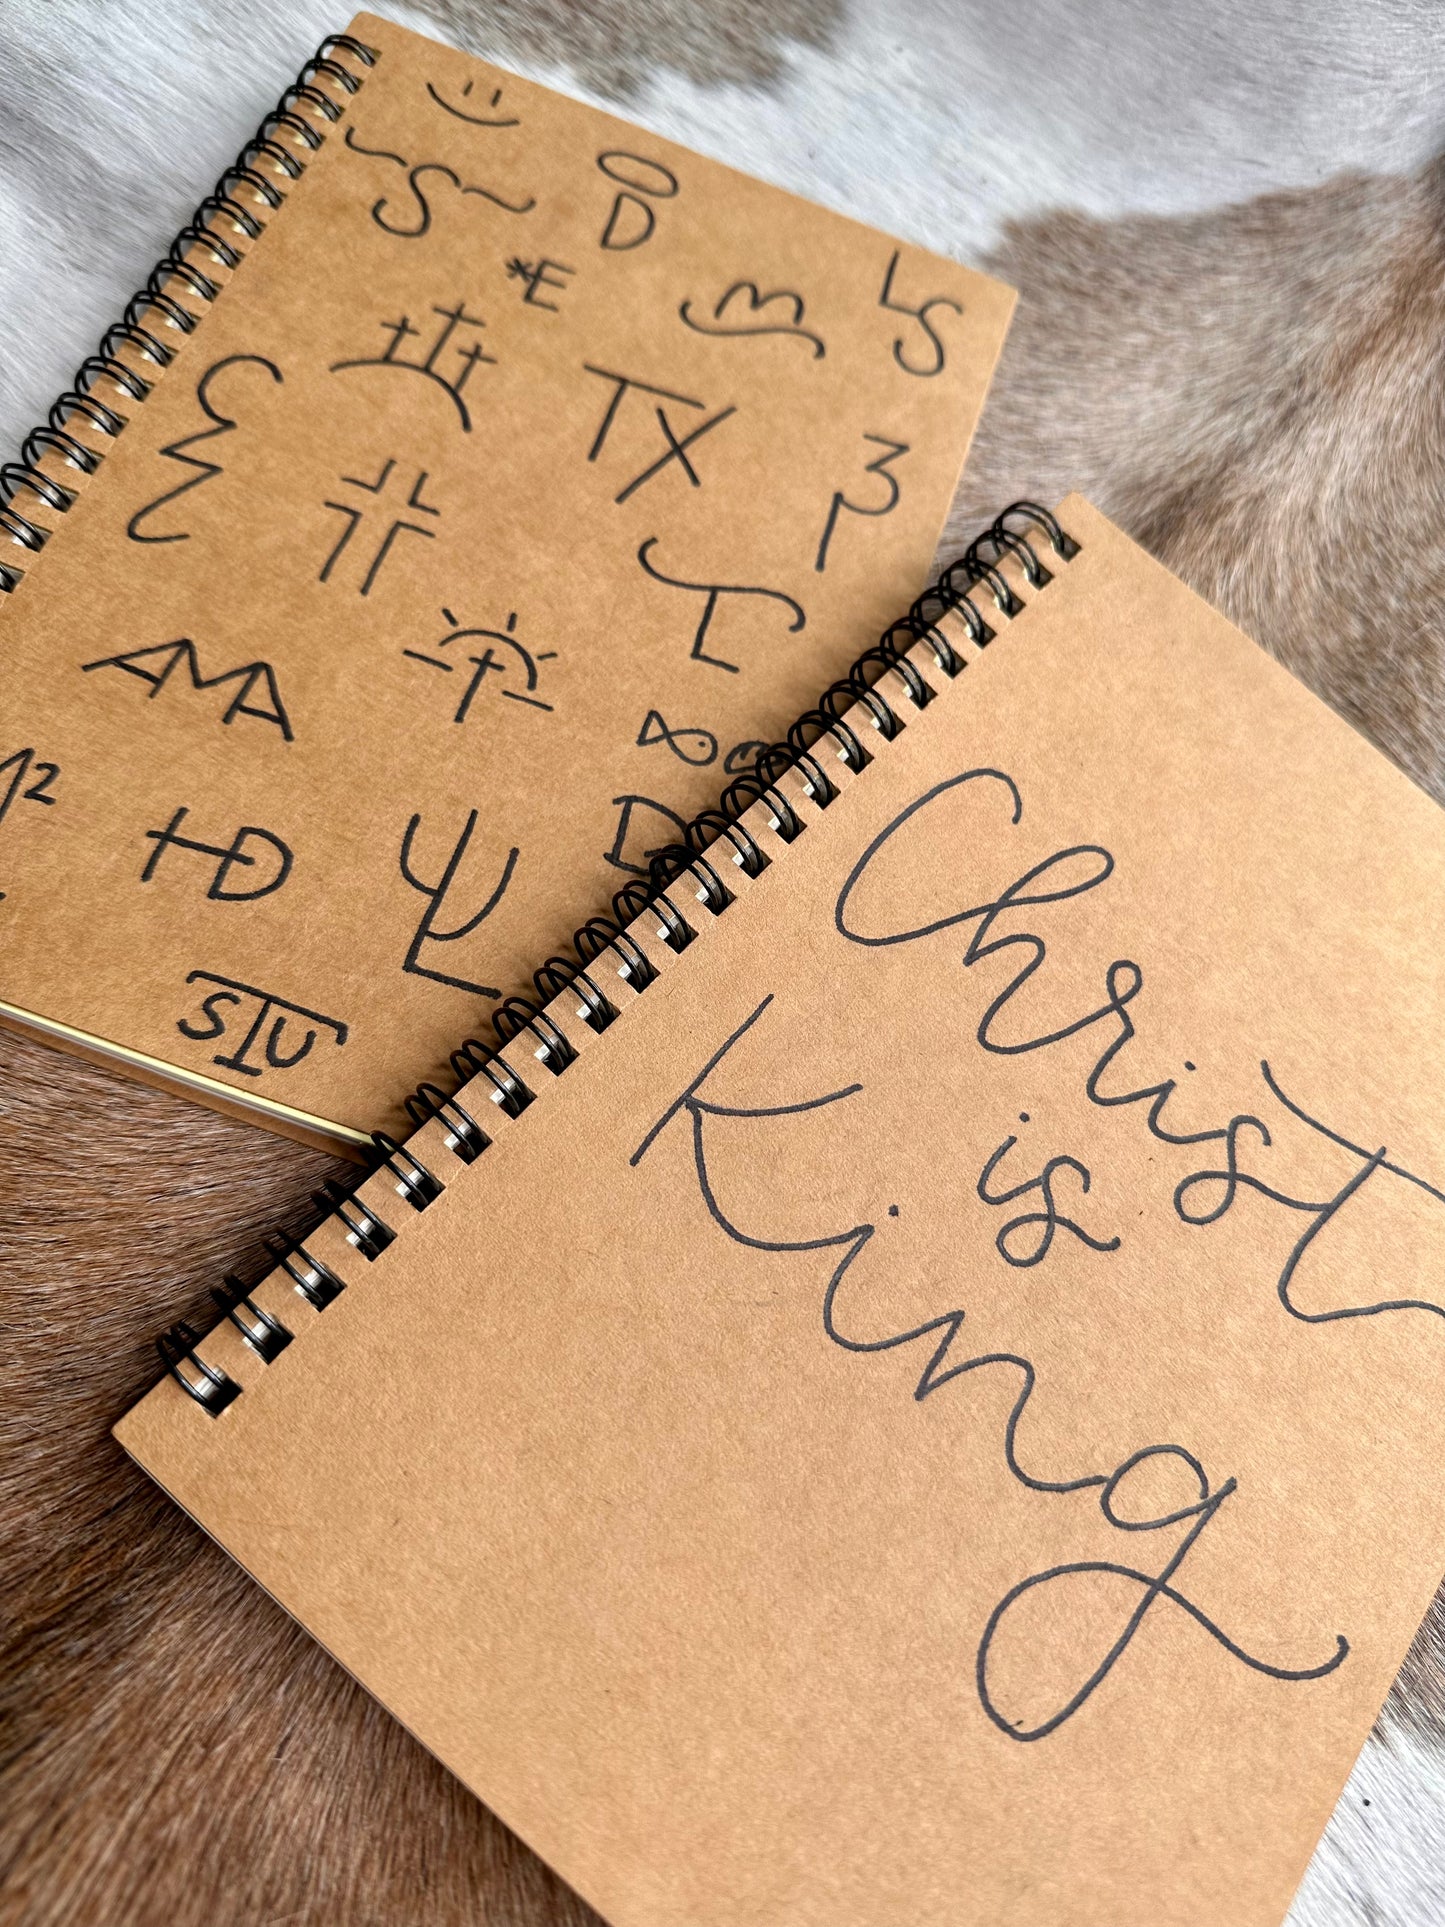 S
D
*E
m
LS
TX
AMA
D
STU
Christ
is
King